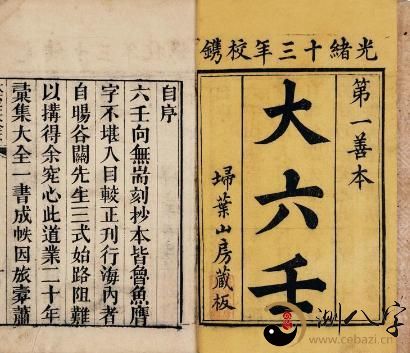 光緒十三年校鐫
第一善本
大六壬
埽葉山房藏板
自序
六壬向無耑刻抄本皆魯魚鴈
字不堪入目較正刊行海內者
自暘谷關先生三式始路阻難
以搆得余寃心此道業二十年
彙集大全一書成帙因旅橐蕭
測八字
www.cebazi.cn